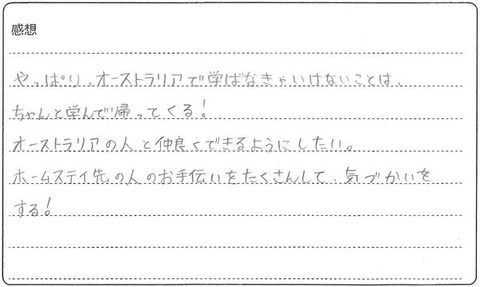 感想
やっぱり、オーストラリアで学ばなきゃいけないことは、
ちゃんと学んで帰ってくる!
オーストラリアの人と仲良くできるようにしたい。
ホームステイ先の人のお手伝いをたくさんして、気づかいを
する!